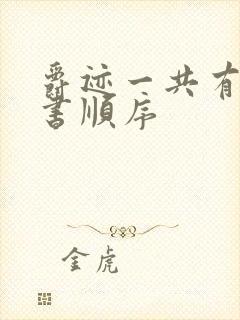 爵迹一共有
书顺序
金虎